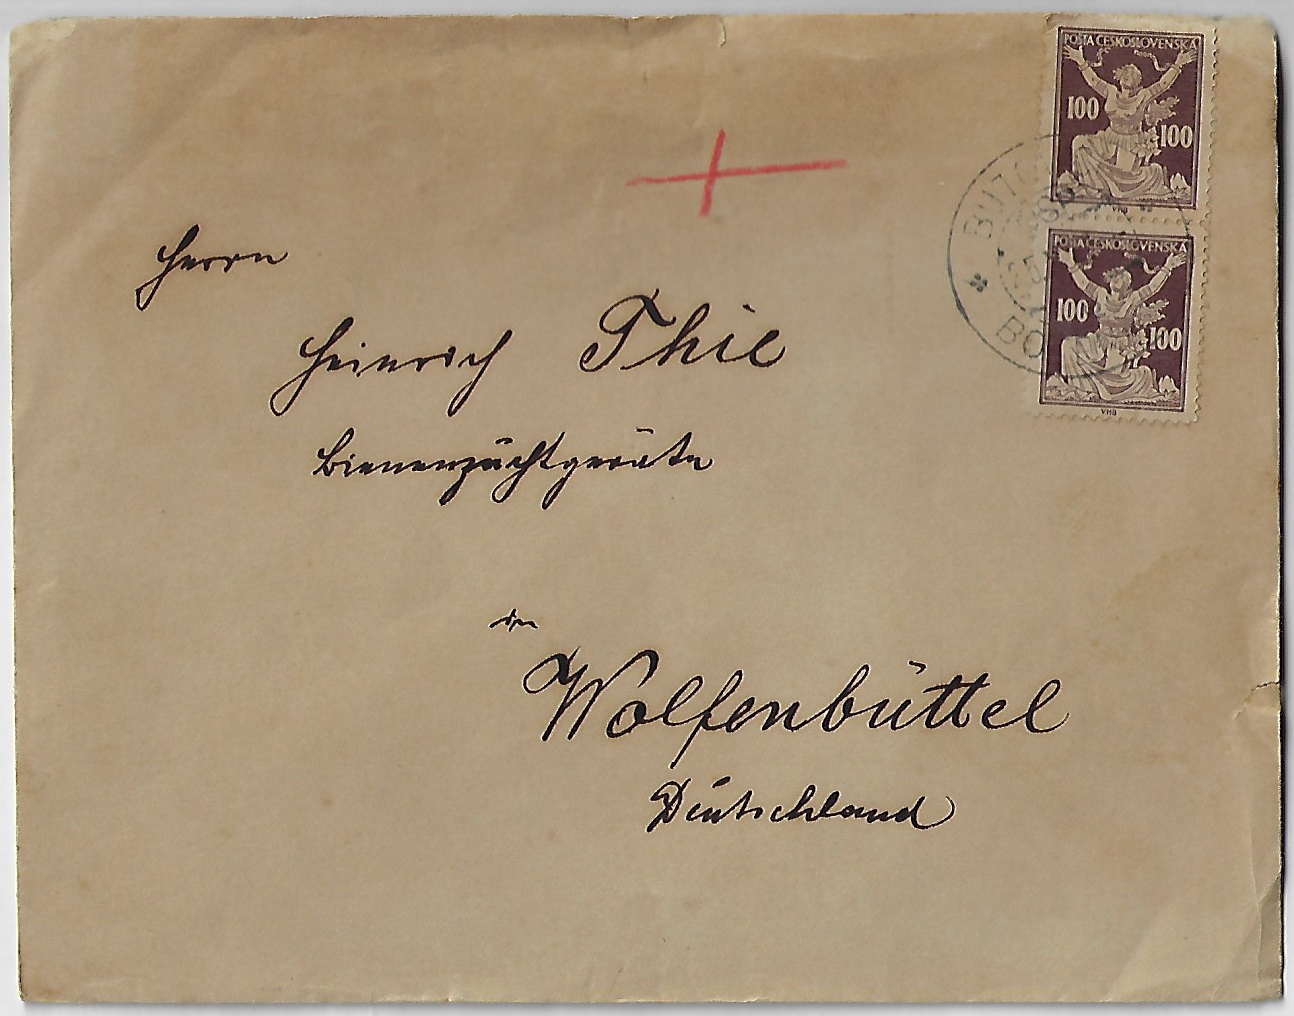 POŠTA ČESKOSLOVENSKÁ
100
100
VHB
POŠTA ČESKOSLOVENSKÁ
100
100
VHB
Herrn
Heinrich Thie
Bienenzuchtgeräte
in
Wolfenbüttel
Deutschland